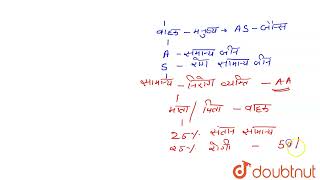 वाहक - मनुष्य → AS - जीन्स
A - सामान्य जीन
S - रोग सामान्य जीन
सामान्य - निरोग व्यक्ति - AA
माता / पिता - वाहक
25% संतान सामान्य
25% रोगी - 50%
doubtnut